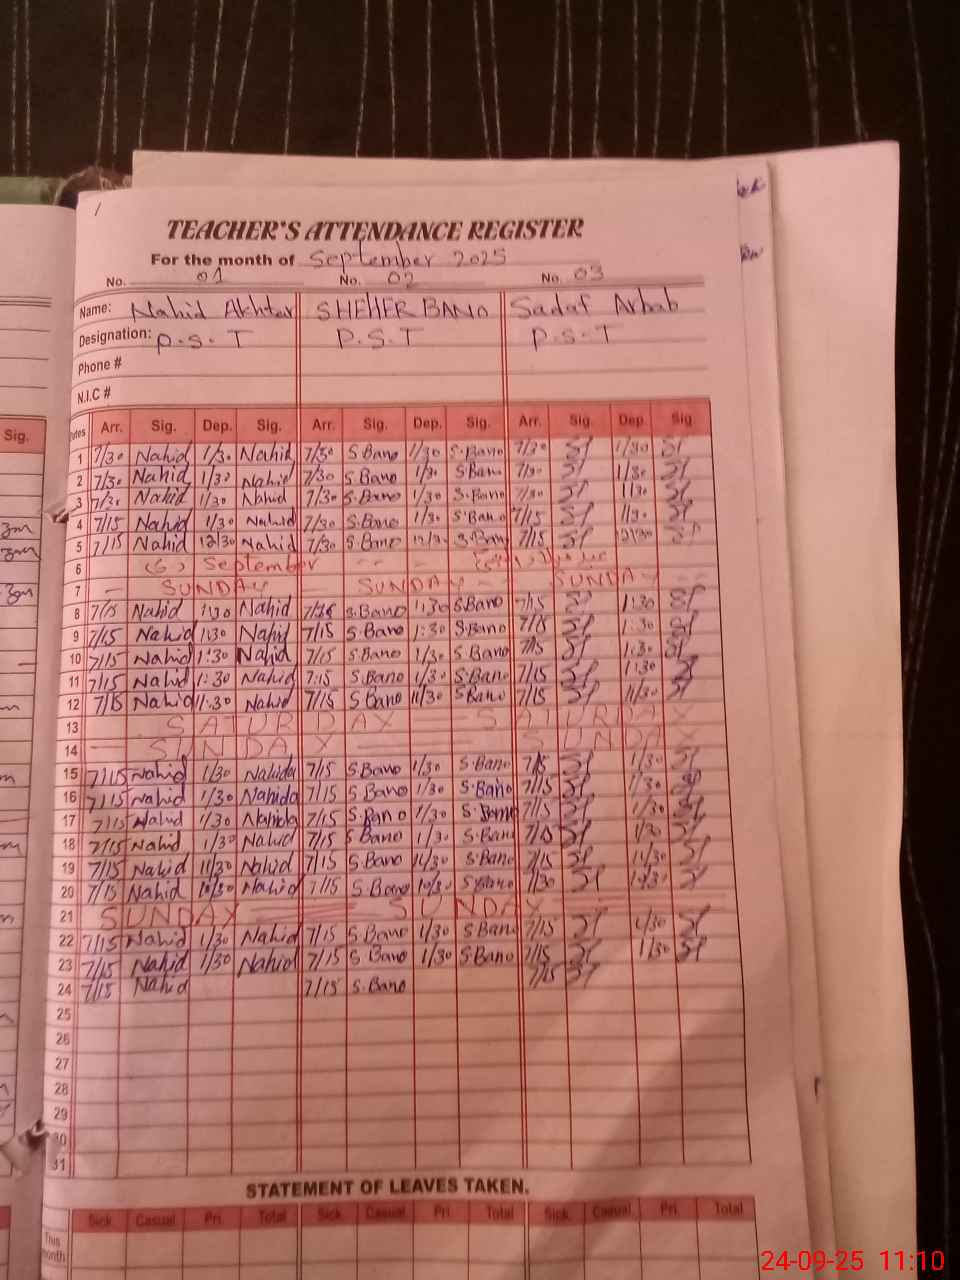 TEACHER'S ATTENDANCE REGISTER
For the month of September 2025
No. 01 No. 02 No. 03
Name: Nahid Akhtar SHEHER BANO Sadaf Arbab
Designation: P.S.T P.S.T P.S.T
Phone #
N.I.C #
Sig. Dates Arr. Sig. Dep. Sig. Arr. Sig. Dep. Sig. Arr. Sig. Dep. Sig.
1 7/30 Nahid 1/30 Nahid 7/30 S.Bano 1/30 S.Bano 7/30 1/30
2 7/30 Nahid 1/30 Nahid 7/30 S.Bano 1/30 S.Bano 7/30 1/30
3 7/30 Nahid 1/30 Nahid 7/30 S.Bano 1/30 S.Bano 7/30 1/30
4 7/15 Nahid 1/30 Nahid 7/30 S.Bano 1/30 S.Bano 7/15 1/30
5 7/15 Nahid 12/30 Nahid 7/30 S.Bano S.Bano 7/15 12/30
6 (6) September
7 SUNDAY SUNDAY SUNDAY
8 7/15 Nahid 1:30 Nahid S.Bano 1:30 S.Bano 7/15 1:30
9 7/15 Nahid 1:30 Nahid 7/15 S.Bano 1:30 S.Bano 7/15 1:30
10 7/15 Nahid 1:30 Nahid 7/15 S.Bano 1/30 S.Bano 7/15 1:30
11 7/15 Nahid 1:30 Nahid 7:15 S.Bano 1/30 S.Bano 7/15 1:30
12 7/15 Nahid 11:30 Nahid 7/15 S.Bano 11/30 S.Bano 7/15 11/30
13 SATURDAY SATURDAY
14 SUNDAY SUNDAY
15 7/15 Nahid 1/30 Nahida 7/15 S.Bano 1/30 S.Bano 7/15 1/30
16 7/15 Nahid 1/30 Nahida 7/15 S.Bano 1/30 S.Bano 7/15 1/30
17 7/15 Nahid 1/30 Nahida 7/15 S.Bano 1/30 S.Bano 7/15 1/30
18 7/15 Nahid 1/30 Nahid 7/15 S.Bano 1/30 S.Bano 7/15 1/30
19 7/15 Nahid 11/30 Nahid 7/15 S.Bano 11/30 S.Bano 7/15 11/30
20 7/15 Nahid 10/30 Nahid 7/15 S.Bano 10/30 S.Bano 7/30 10/30
21 SUNDAY SUNDAY
22 7/15 Nahid 1/30 Nahid 7/15 S.Bano 1/30 S.Bano 7/15 1/30
23 7/15 Nahid 1/30 Nahid 7/15 S.Bano 1/30 S.Bano 7/15 1/30
24 7/15 Nahid 7/15 S.Bano 7/15
25
26
27
28
29
30
31
STATEMENT OF LEAVES TAKEN.
Sick Casual Pri. Total Sick. Casual. Pri. Total Sick. Casual. Pri. Total
This month
24-09-25 11:10